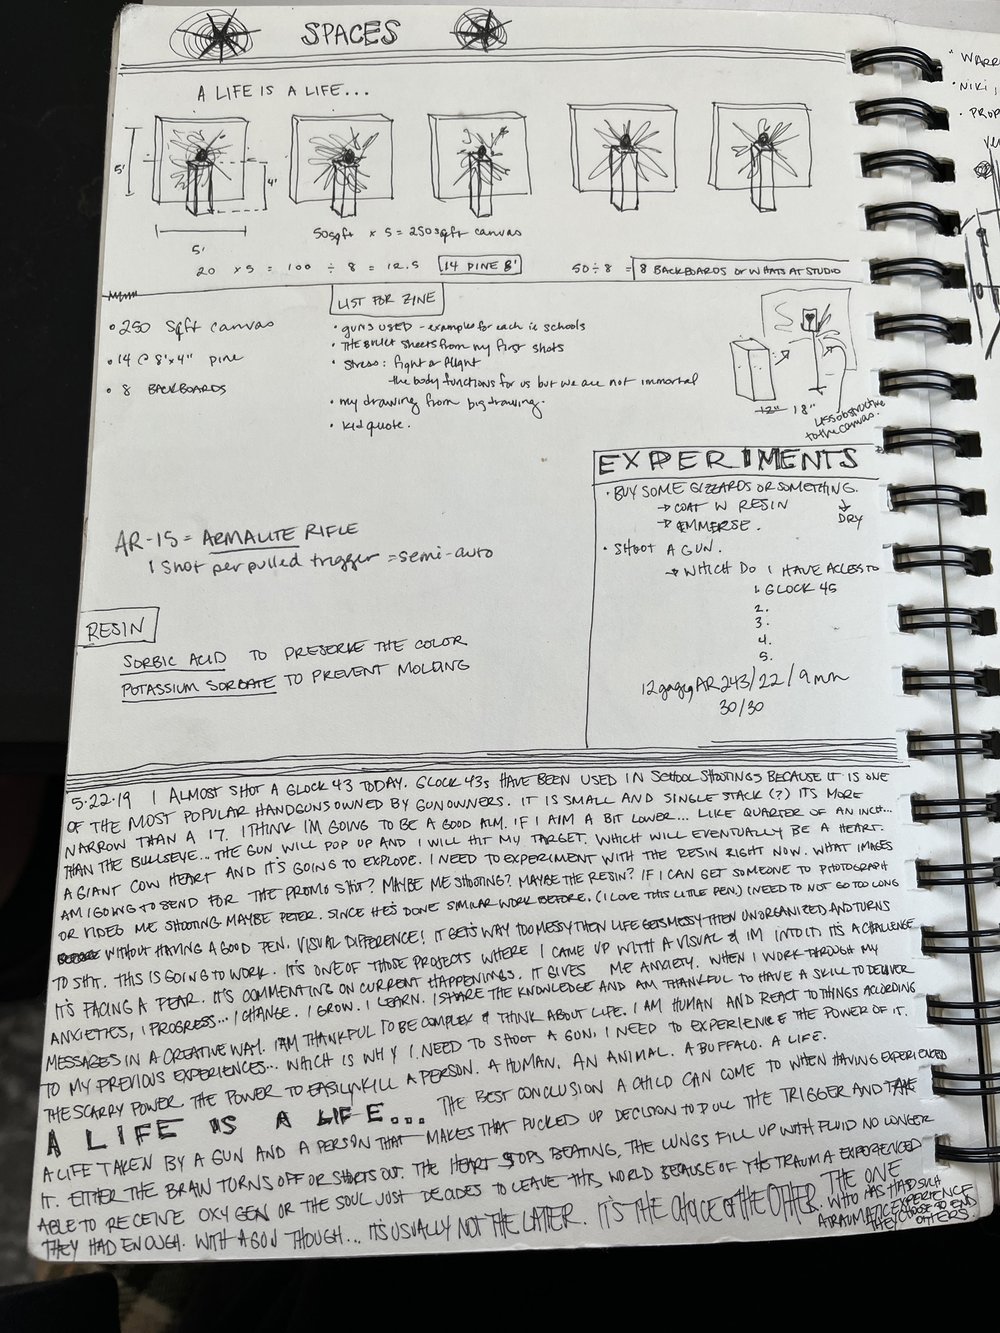 SPACES
A LIFE IS A LIFE...
5'
4'
5'
50sqft x 5 = 250sqft canvas
20 x 5 = 100 ÷ 8 = 12.5 14 PINE 8'
50÷8 = 8 BACKBOARDS or WHATS AT STUDIO
• 250 sqft canvas
• 14 @ 8'x4" pine
• 8 BACKBOARDS
LIST FOR ZINE
• guns used - examples for each ie schools
• THE BULLET sheets from my first shots
• Stress: fight or flight
the body functions for us but we are not immortal
• my drawing from big drawing.
• kid quote.
12" 18"
less obstructive
to the canvas.
EXPERIMENTS
• BUY SOME GIZZARDS OR SOMETHING.
→ COAT W RESIN
→ EMMERSE.
↓
DRY
• SHOOT A GUN.
→ WHICH DO I HAVE ACCESS TO
1. GLOCK 45
2.
3.
4.
5.
12 gage, AR 243/22/9mm
30/30
AR-15 = ARMALITE RIFLE
1 shot per pulled trigger = semi-auto
RESIN
SORBIC ACID TO PRESERVE THE COLOR
POTASSIUM SORBATE TO PREVENT MOLDING
5·22·19 I ALMOST SHOT A GLOCK 43 TODAY. GLOCK 43s HAVE BEEN USED IN SCHOOL SHOOTINGS BECAUSE IT IS ONE
OF THE MOST POPULAR HANDGUNS OWNED BY GUNOWNERS. IT IS SMALL AND SINGLE STACK (?) ITS MORE
NARROW THAN A 17. I THINK I'M GOING TO BE A GOOD AIM. IF I AIM A BIT LOWER... LIKE QUARTER OF AN INCH...
THAN THE BULLSEYE... THE GUN WILL POP UP AND I WILL HIT MY TARGET. WHICH WILL EVENTUALLY BE A HEART.
A GIANT COW HEART AND IT'S GOING TO EXPLODE. I NEED TO EXPERIMENT WITH THE RESIN RIGHT NOW. WHAT IMAGES
AM I GOING TO SEND FOR THE PROMO SHIT? MAYBE ME SHOOTING? MAYBE THE RESIN? IF I CAN GET SOMEONE TO PHOTOGRAPH
OR VIDEO ME SHOOTING MAYBE PETER. SINCE HE'S DONE SIMILAR WORK BEFORE. (I LOVE THIS LITTLE PEN) I NEED TO NOT GO TOO LONG
WITHOUT HAVING A GOOD PEN. VISUAL DIFFERENCE! IT GETS WAY TOO MESSY THEN LIFE GETS MESSY THEN UNORGANIZED AND TURNS
TO SHIT. THIS IS GOING TO WORK. IT'S ONE OF THOSE PROJECTS WHERE I CAME UP WITH A VISUAL & IM INTO IT. IT'S A CHALLENGE
IT'S FACING A FEAR. IT'S COMMENTING ON CURRENT HAPPENINGS. IT GIVES ME ANXIETY. WHEN I WORK THROUGH MY
ANXIETIES, I PROGRESS... I CHANGE. I GROW. I LEARN. I SHARE THE KNOWLEDGE AND AM THANKFUL TO HAVE A SKILL TO DELIVER
MESSAGES IN A CREATIVE WAY. I AM THANKFUL TO BE COMPLEX & THINK ABOUT LIFE. I AM HUMAN AND REACT TO THINGS ACCORDING
TO MY PREVIOUS EXPERIENCES... WHICH IS WHY I NEED TO SHOOT A GUN. I NEED TO EXPERIENCE THE POWER OF IT.
THE SCARRY POWER THE POWER TO EASILY KILL A PERSON. A HUMAN. AN ANIMAL. A BUFFALO. A LIFE.
A LIFE IS A LIFE... THE BEST CONCLUSION A CHILD CAN COME TO WHEN HAVING EXPERIENCED
A LIFE TAKEN BY A GUN AND A PERSON THAT MAKES THAT FUCKED UP DECISION TO PULL THE TRIGGER AND TAKE
IT. EITHER THE BRAIN TURNS OFF OR SHORTS OUT. THE HEART STOPS BEATING, THE LUNGS FILL UP WITH FLUID NO LONGER
ABLE TO RECEIVE OXYGEN OR THE SOUL JUST DECIDES TO LEAVE THIS WORLD BECAUSE OF THE TRAUMA EXPERIENCED
THEY HAD ENOUGH. WITH A GUN THOUGH... IT'S USUALLY NOT THE LATER. IT'S THE CHOICE OF THE OTHER. THE ONE
WHO HAS HAD SUCH
A TRAUMATIC EXPERIENCE
THEY CHOOSE TO END
OTHERS.
• NIKI